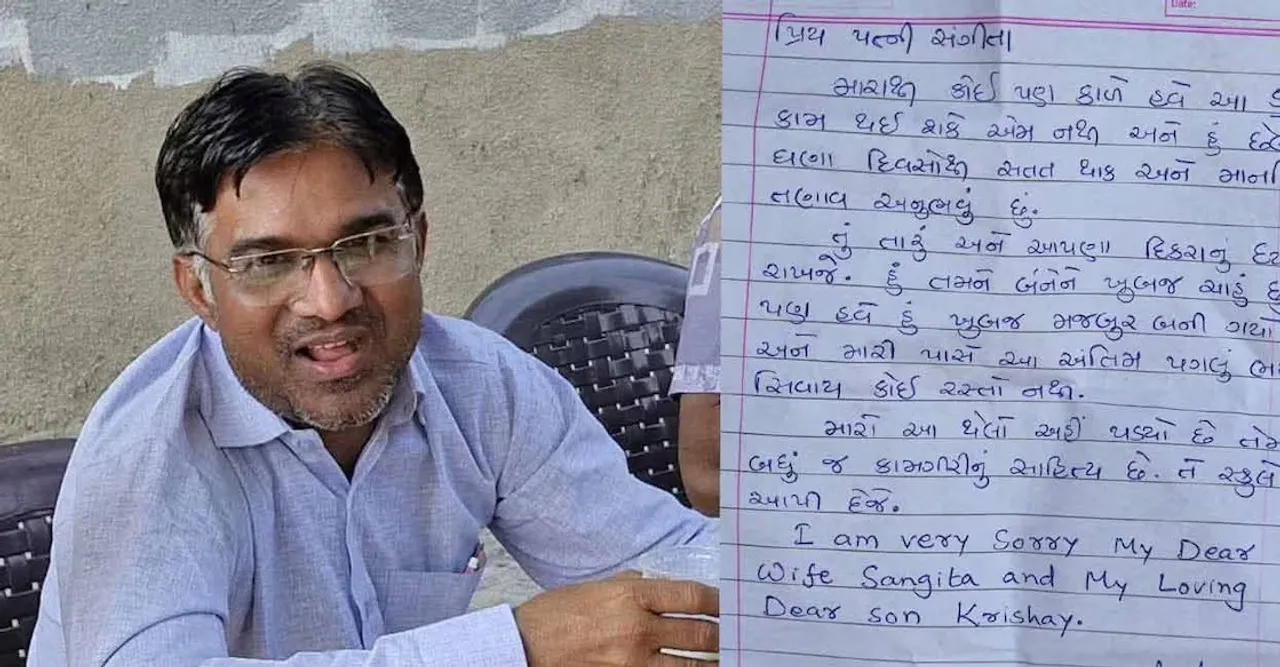 Date:
પ્રિય પત્ની સંગીતા
મારાથી કોઈ પણ કાળે હવે આ
કામ થઈ શકે એમ નથી અને હું
ઘણા દિવસોથી સતત થાક અને
તણાવ અનુભવું છું.
તું તારું અને આપણા દિકરાનું
રાખજે. હું તમને બંનેને ખુબજ ચાહું
પણ હવે હું ખુબજ મજબુર બની ગયો
અને મારી પાસે આ અંતિમ પગલું
સિવાય કોઈ રસ્તો નથી.
મારો આ થેલો અહીં પડ્યો છે
બધું જ કામગીરીનું સાહિત્ય છે. તે સ્કુલે
આપી દેજે.
I am very Sorry My Dear
Wife Sangita and My Loving
Dear son Krishay.